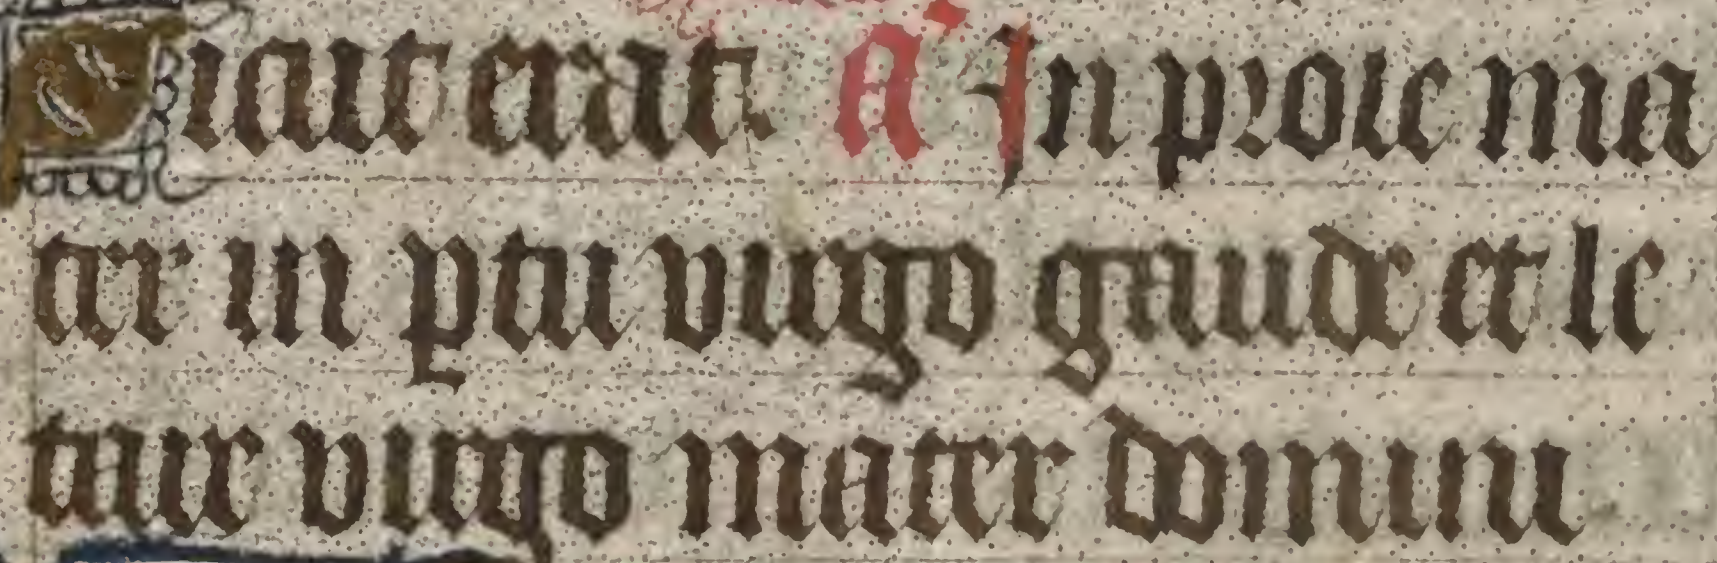 Sicut erat A In prole ma
ter in ꝑtu virgo gaude et le
tare virgo mater domini